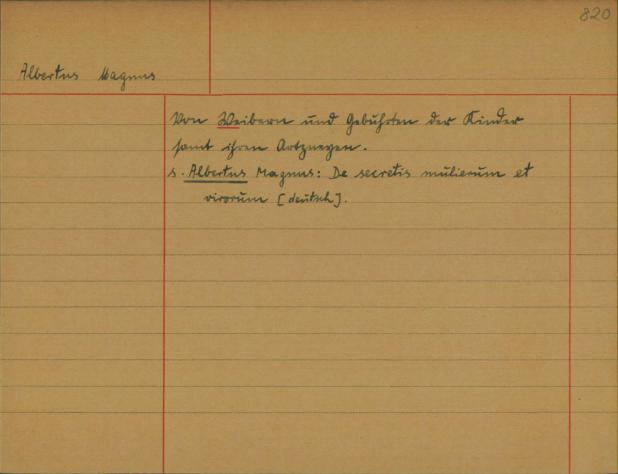 820
Albertus Magnus
Von Weibern und Gebuhrten der Kinder
samt ihren Artzneyen.
s. Albertus Magnus: De secretis mulierum et
virorum [deutsch].